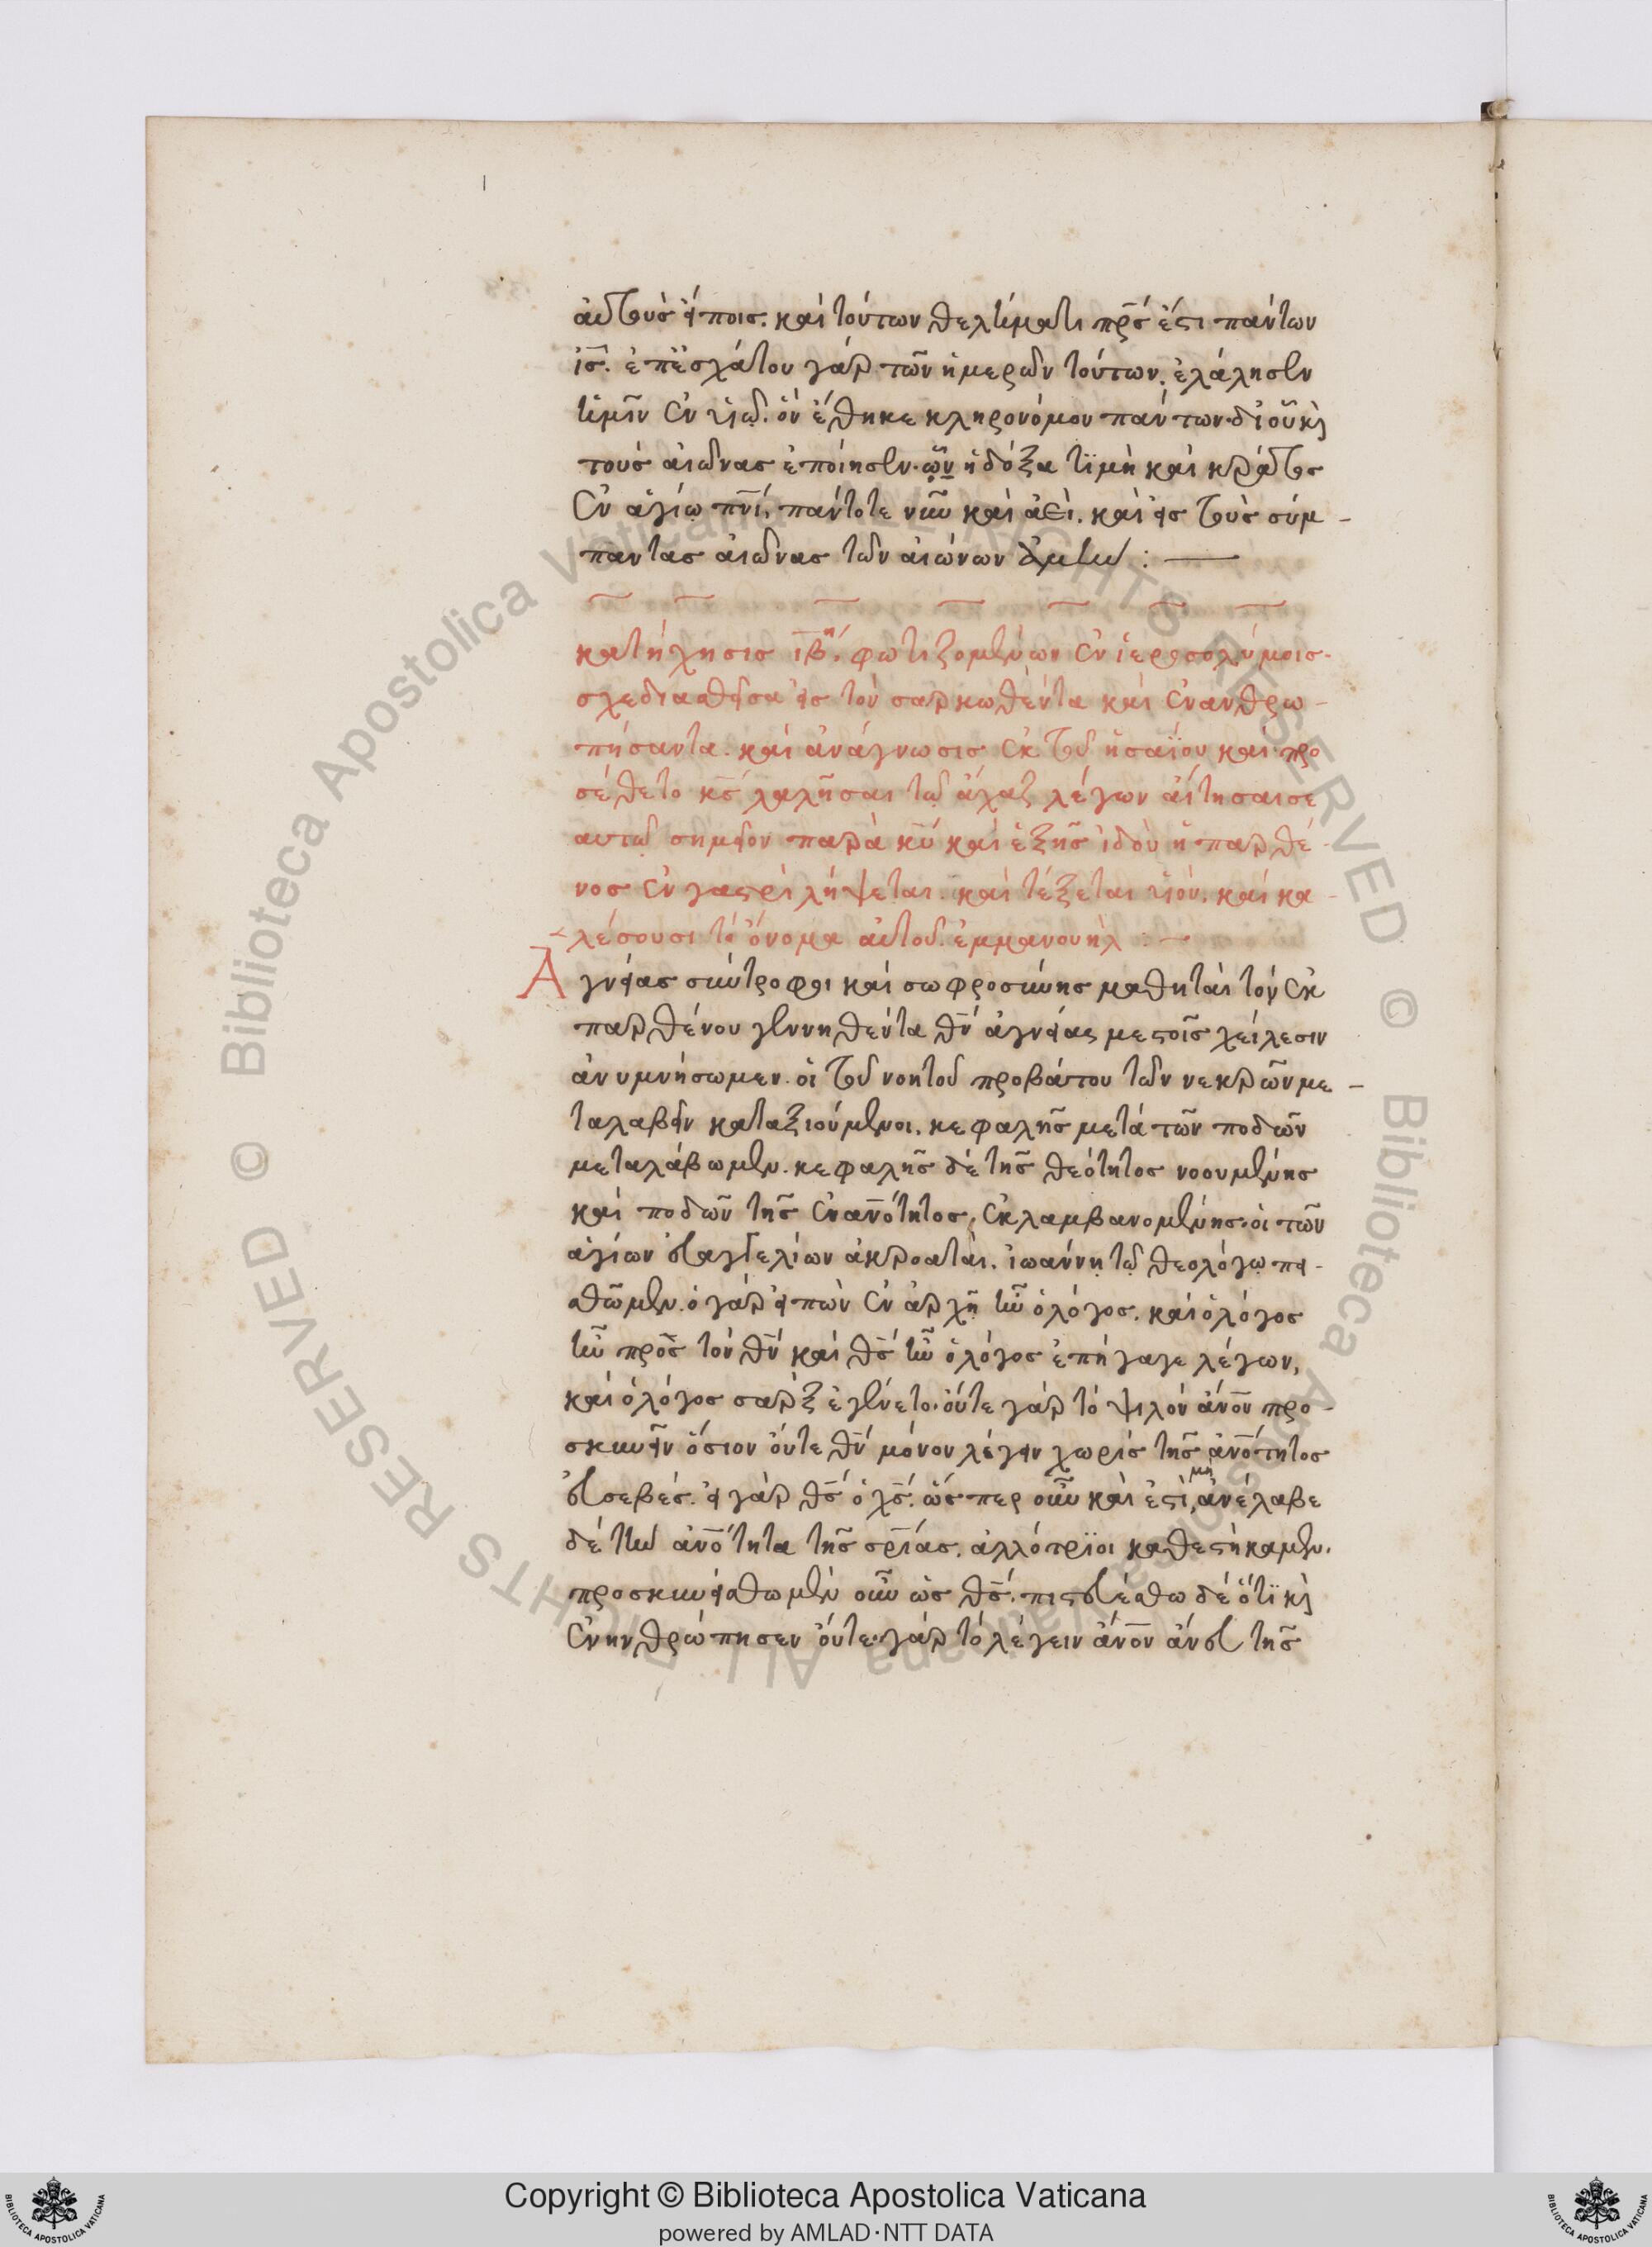 αὐτοὺς εἴποις. καὶ τούτων θελήματι πρ̅ς ἐστι πάντων
ι̅ς. ἐπ' ἐσχάτου γὰρ τῶν ἡμερῶν τούτων. ἐλάλησεν
ἡμῖν ἐν υἱῷ. ὃν ἔθηκε κληρονόμον πάντων. δι' οὗ κ̀
τοὺς αἰῶνας ἐποίησεν. ᾧ ἡ δόξα τιμὴ καὶ κράτος
ἐν ἁγίῳ πν̅ι. πάντοτε νῦν καὶ ἀεὶ. καὶ εἰς τοὺς σύμ-
παντας αἰῶνας τῶν αἰώνων ἀμήν :—
κατήχησις ι̅β̅η. φωτιζομένων ἐν ἱεροσολύμοις.
σχεδιασθεῖσα εἰς τὸν σαρκωθέντα καὶ ἐνανθρω-
πήσαντα. καὶ ἀνάγνωσις ἐκ τοῦ ἡσαΐου καὶ προ
σέθετο κ̅ς λαλῆσαι τῷ ἄχαζ λέγων αἴτησαι σε
αυτῷ σημεῖον παρὰ κ̅υ καὶ ἑξῆς ἰδοὺ ἡ παρθέ-
νος ἐν γαστρὶ λήψεται. καὶ τέξεται υἱόν. καὶ κα-
λέσουσι τὸ ὄνομα αὐτοῦ. ἐμμανουήλ :—
Ἁγνείας σύντροφοι καὶ σωφροσύνης μαθηταὶ τὸν ἐκ
παρθένου γεννηθέντα θ̅ν ἁγνείας μεστοῖς χείλεσιν
ἀνυμνήσωμεν. οἱ τοῦ νοητοῦ προβάτου τῶν νεκρῶν με-
ταλαβεῖν καταξιούμενοι. κεφαλῆς μετὰ τῶν ποδῶν
μεταλάβωμεν. κεφαλῆς δὲ τῆς θεότητος νοουμένης
καὶ ποδῶν τῆς ἐναν̅ότητος, ἐκλαμβανομένης. οἱ τῶν
ἁγίων εὐαγγελίων ἀκροαταὶ. ἰωάννῃ τῷ θεολόγῳ πει-
σθῶμεν. ὁ γὰρ εἰπὼν ἐν ἀρχῇ ἦν ὁ λόγος. καὶ ὁ λόγος
ἦν πρὸς τὸν θ̅ν καὶ θ̅ς ἦν ὁ λόγος ἐπήγαγε λέγων,
καὶ ὁ λόγος σὰρξ ἐγένετο. οὔτε γὰρ τὸ ψιλὸν ἄν̅ον προ-
σκυνεῖν ὅσιον οὔτε θ̅ν μόνον λέγειν χωρὶς τῆς ἀν̅ότητος
εὐσεβές. εἰ γὰρ θ̅ς ὁ χ̅ς. ὥσπερ οὖν καὶ ἐστὶ, μὴ ἀνέλαβε
δὲ τὴν ἀν̅ότητα τῆς σρ̅ίας. ἀλλότριοι καθεστήκαμεν.
προσκυνείσθω μὲν οὖν ὡς θ̅ς. πιστευέσθω δὲ ὅτι κ̀
ἐνηνθρώπησεν οὔτε γὰρ τὸ λέγειν ἄν̅ον ἄνευ τῆς